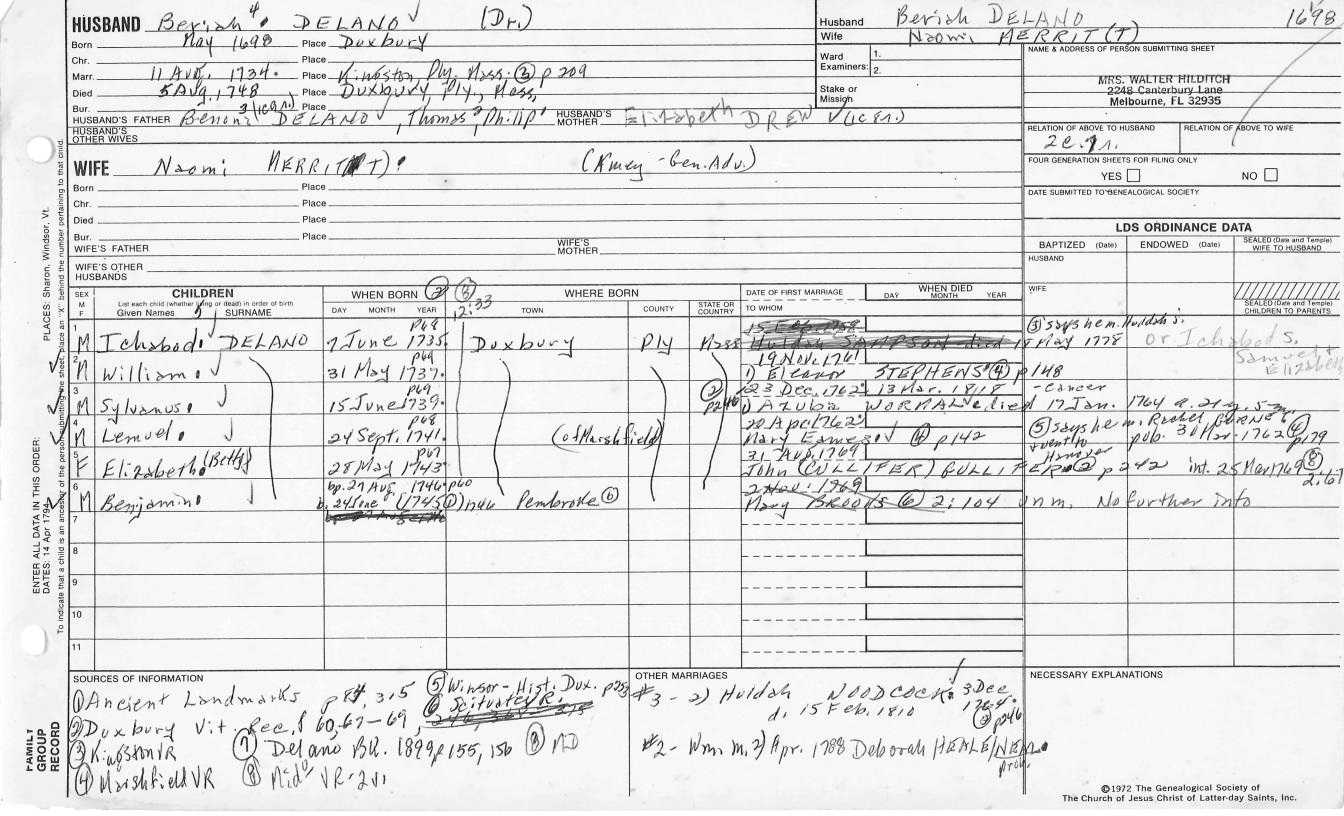 HUSBAND Beriah 4 DELANO (Dr.)
Born May 1698 Place Duxbury
Chr. Place
Marr. 11 Aug. 1734. Place Kingston, Ply. Mass. ③ p 209
Died 5 Aug. 1748 Place Duxbury, Ply., Mass,
Bur. Place
HUSBAND'S FATHER Benoni 3 (1c gn) DELANO, Thomas 2, Philip 1 HUSBAND'S MOTHER Elizabeth DREW (1c gn.)
HUSBAND'S OTHER WIVES
Husband Beriah DELANO 1698
Wife Naomi MERRIT(T)
Ward Examiners: 1. 2.
Stake or Mission
NAME & ADDRESS OF PERSON SUBMITTING SHEET
MRS. WALTER HILDITCH
2248 Canterbury Lane
Melbourne, FL 32935
RELATION OF ABOVE TO HUSBAND RELATION OF ABOVE TO WIFE
FOUR GENERATION SHEETS FOR FILING ONLY
YES NO
DATE SUBMITTED TO GENEALOGICAL SOCIETY
WIFE Naomi MERRIT(T). (Kmey - Gen. Adv.)
Born Place
Chr. Place
Died Place
Bur. Place
WIFE'S FATHER WIFE'S MOTHER
WIFE'S OTHER HUSBANDS
LDS ORDINANCE DATA
BAPTIZED (Date) ENDOWED (Date) SEALED (Date and Temple) WIFE TO HUSBAND
HUSBAND
WIFE
SEALED (Date and Temple) CHILDREN TO PARENTS
SEX M F CHILDREN List each child (whether living or dead) in order of birth Given Names SURNAME
WHEN BORN ② DAY MONTH YEAR
⑧ 12:33 WHERE BORN TOWN COUNTY STATE OR COUNTRY
DATE OF FIRST MARRIAGE TO WHOM
WHEN DIED DAY MONTH YEAR
1 M Ichabod 5 DELANO 7 June 1735. p68 Duxbury Ply Mass
15 Feb. 1758
Huldah SAMPSON died 15 May 1778
⑤ says he m. Huldah S. or Ichabod S. Samuel & Elizabeth
2 M William. 31 May 1737. p69
19 Nov. 1761
1) Eleanor STEPHENS ④ p 148
3 M Sylvanus. 15 June 1739. p69 ② p246
23 Dec. 1762 13 Mar. 1818 - cancer
1) Azubia WORMALL died 17 Jan. 1764 a. 21 y. 5 m.
4 M Lemuel. 24 Sept. 1741. p68 (of Marshfield)
20 Apr. 1762
Mary Eames ④ p 142
⑤ says he m. Rachel pub. 1762 ④ p179
went to Hanover
5 F Elizabeth (Betty) 28 May 1743 p67
31 Aug. 1769
John (CULLIFER) GULLIFER ② p 242 int. 25 Mar 1769 ⑧ 2:67
6 M Benjamin. bp. 27 Aug. 1746 p60
b. 24 June 1745 Pembroke ⑥
2 Nov. 1769
Mary BROOKS ⑥ 2:104 unm. No further info
7
8
9
10
11
SOURCES OF INFORMATION
① Ancient Landmarks p 84, 315
② Duxbury Vit. Rec. 60, 67-69,
③ Kingston VR
④ Marshfield VR
⑤ Winsor - Hist. Dux. p 253
⑥ Scituate VR.
⑦ Delano BR. 1899 p 155, 156
⑧ MD
⑧ Mid° VR-2v1
OTHER MARRIAGES
#3 - 2) Huldah WOODCOCK. 3 Dec. 1764. ② p246
d. 15 Feb. 1810
#2 - Wm. m. 2) Apr. 1788 Deborah
NECESSARY EXPLANATIONS
FAMILY GROUP RECORD
ENTER ALL DATA IN THIS ORDER:
DATES: 14 Apr 1794
PLACES: Sharon, Windsor, Vt.
To indicate that a child is an ancestor of the person submitting the sheet, place an "X" behind the number pertaining to that child.
©1972 The Genealogical Society of
The Church of Jesus Christ of Latter-day Saints, Inc.